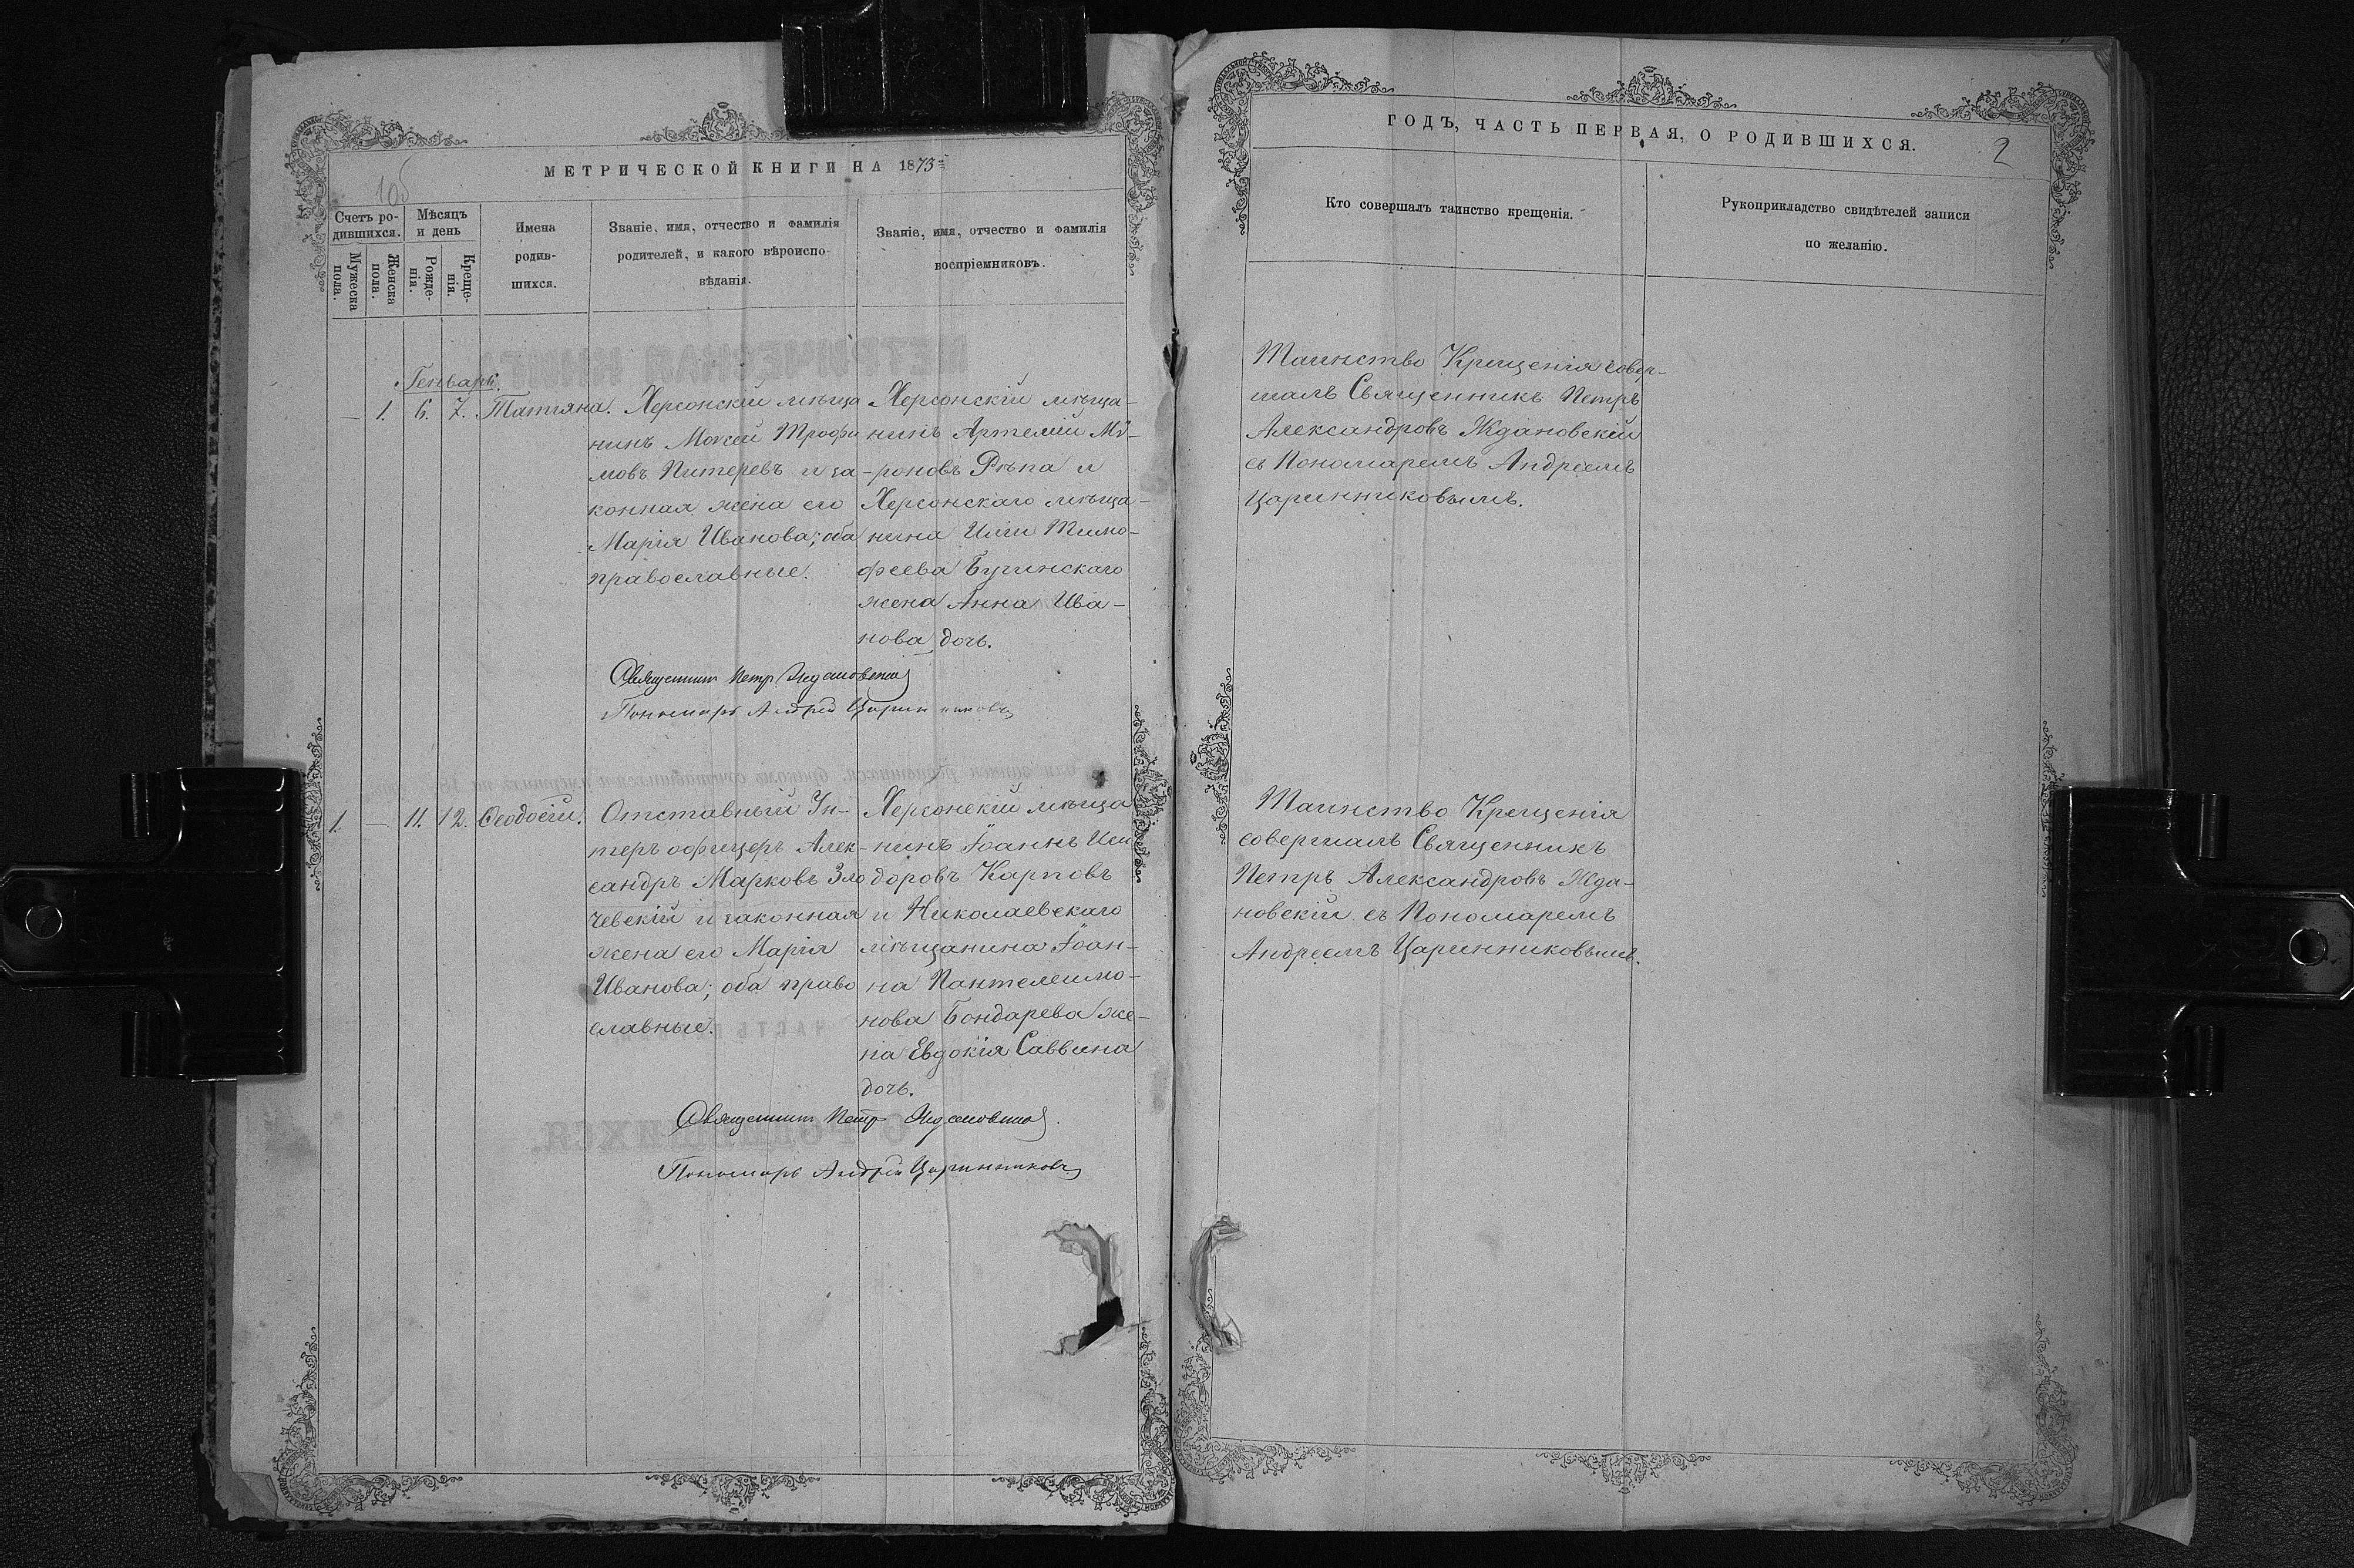 МЕТРИЧЕСКОЙ КНИГИ НА 1873
1об
Счетъ ро-
дившихся.
Мужеска
пола.
Женска
пола.
Мѣсяцъ
и день
Рожде-
нія.
Креще-
нія.
Имена
родив-
шихся.
Званіе, имя, отчество и фамилія
родителей, и какого вѣроиспо-
вѣданія.
Званіе, имя, отчество и фамилія
воспріемниковъ.
Генварь.
— 1. 6. 7. Татіяна.
Херсонскій мѣща
нинъ Моѵсей Трофи
мовъ Питеревъ и за-
конная жена его
Марія Иванова; оба
православные.
Херсонскій мѣща-
нинъ Артемій Мѵ-
роновъ Рѣпа и
Херсонскаго мѣща-
нина Иліи Тимо-
феева Бучинскаго
жена Анна Ива-
нова дочь.
Священникъ Петр Ждановскій
Пономарь Андрей Царинниковъ
1. — 11. 12. Ѳеодосій.
Отставный Ун-
теръ офицеръ Алек-
сандръ Марковъ Зло
чевскій и законная
жена его Марія
Иванова; оба право
славные.
Херсонскій мѣща
нинъ Іоаннъ Иси
доровъ Карповъ
и Николаевскаго
мѣщанина Іоан-
на Пантелеимо-
нова Бондарева же-
на Евдокія Саввина
дочь.
Священникъ Петр Ждановскій.
Пономарь Андрей Царинниковъ
ГОДЪ, ЧАСТЬ ПЕРВАЯ, О РОДИВШИХСЯ.
2
Кто совершалъ таинство крещенія.
Рукоприкладство свидѣтелей записи
по желанію.
Таинство Крещенія совер-
шалъ Священникъ Петръ
Александровъ Ждановскій
съ Пономаремъ Андреемъ
Царинниковымъ.
Таинство Крещенія
совершалъ Священникъ
Петръ Александровъ Жда-
новскій съ Пономаремъ
Андреемъ Царинниковымъ.